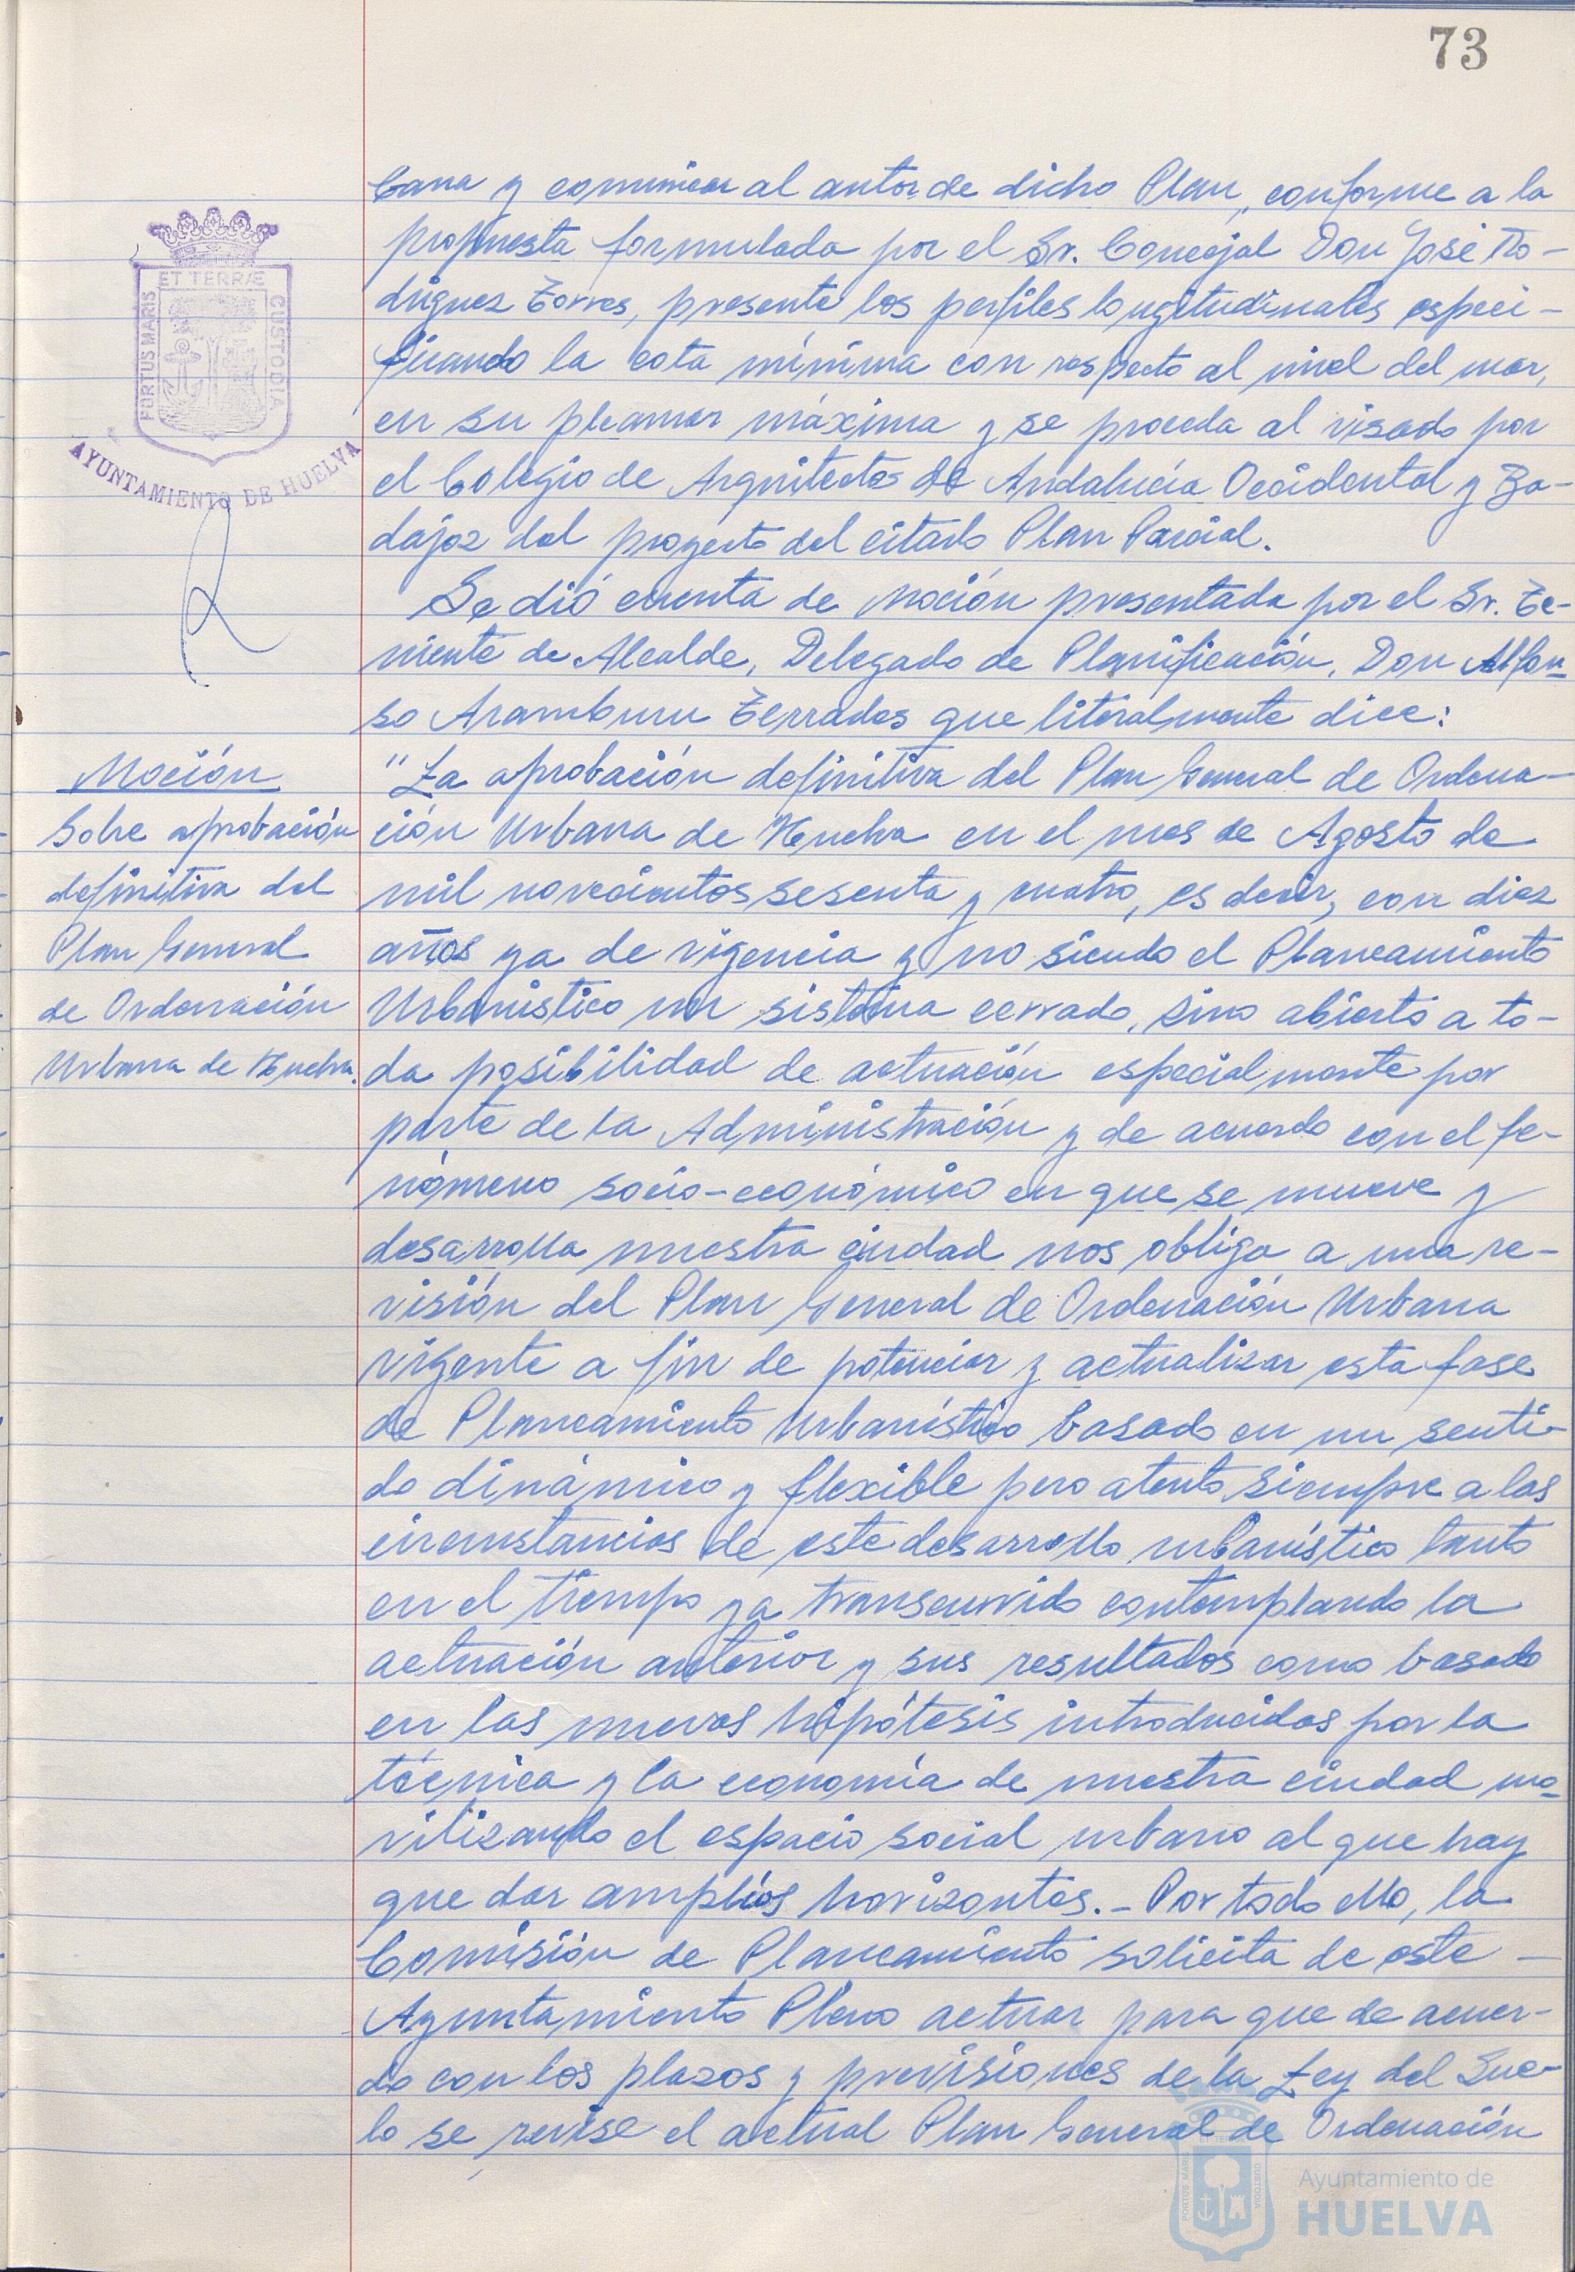 73
bana y comunicar al autor de dicho Plan, conforme a la
propuesta formulada por el Sr. Concejal Don José Ro-
driguez Torres, presente los perfiles longitudinales especi-
ficando la cota mínima con respecto al nivel del mar,
en su pleamar máxima y se proceda al visado por
el Colegio de Arquitectos de Andalucía Occidental y Ba-
dajoz del proyecto del citado Plan Parcial.
Se dió cuenta de moción presentada por el Sr. Te-
niente de Alcalde, Delegado de Planificación, Don Alfon-
so Aramburu Terrades que literalmente dice:
"La aprobación definitiva del Plan General de Ordena-
ción Urbana de Huelva en el mes de Agosto de
mil novecientos sesenta y cuatro, es decir, con diez
años ya de vigencia y no siendo el Planeamiento
Urbanístico un sistema cerrado, sino abierto a to-
da posibilidad de actuación especialmente por
parte de la Administración y de acuerdo con el fe-
nómeno socio-económico en que se mueve y
desarrolla nuestra ciudad nos obliga a una re-
visión del Plan General de Ordenación Urbana
vigente a fin de potenciar y actualizar esta fase
de Planeamiento Urbanístico basado en un senti-
do dinámico y flexible pero atento siempre a las
circunstancias de este desarrollo urbanístico tanto
en el tiempo ya transcurrido contemplando la
actuación anterior y sus resultados como basado
en las nuevas hipótesis introducidas por la
técnica y la economía de nuestra ciudad mo-
vilizando el espacio social urbano al que hay
que dar amplios horizontes.- Por todo ello, la
Comisión de Planeamiento solicita de este -
Ayuntamiento Pleno actuar para que de acuer-
do con los plazos y previsiones de la Ley del Sue-
lo se revise el actual Plan General de Ordenación
Moción
Sobre aprobación
definitiva del
Plan General
de Ordenación
Urbana de Huelva.
PORTUS MARIS
ET TERRÆ
CUSTODIA
AYUNTAMIENTO DE HUELVA
PORTUS MARIS
CUSTODIA
Ayuntamiento de
HUELVA